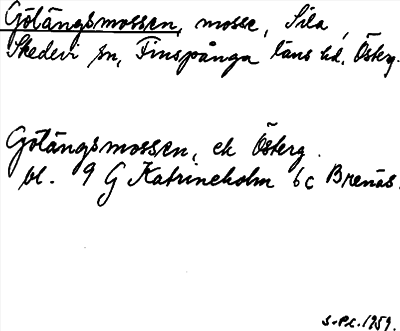 Götängsmossen, mosse, Sila,
Skedevi sn, Finspånga läns hd. Österg.
Götängsmossen, ek Österg.
bl. 9 G Katrineholm 6c Brenäs.
S-Pl. 1959.